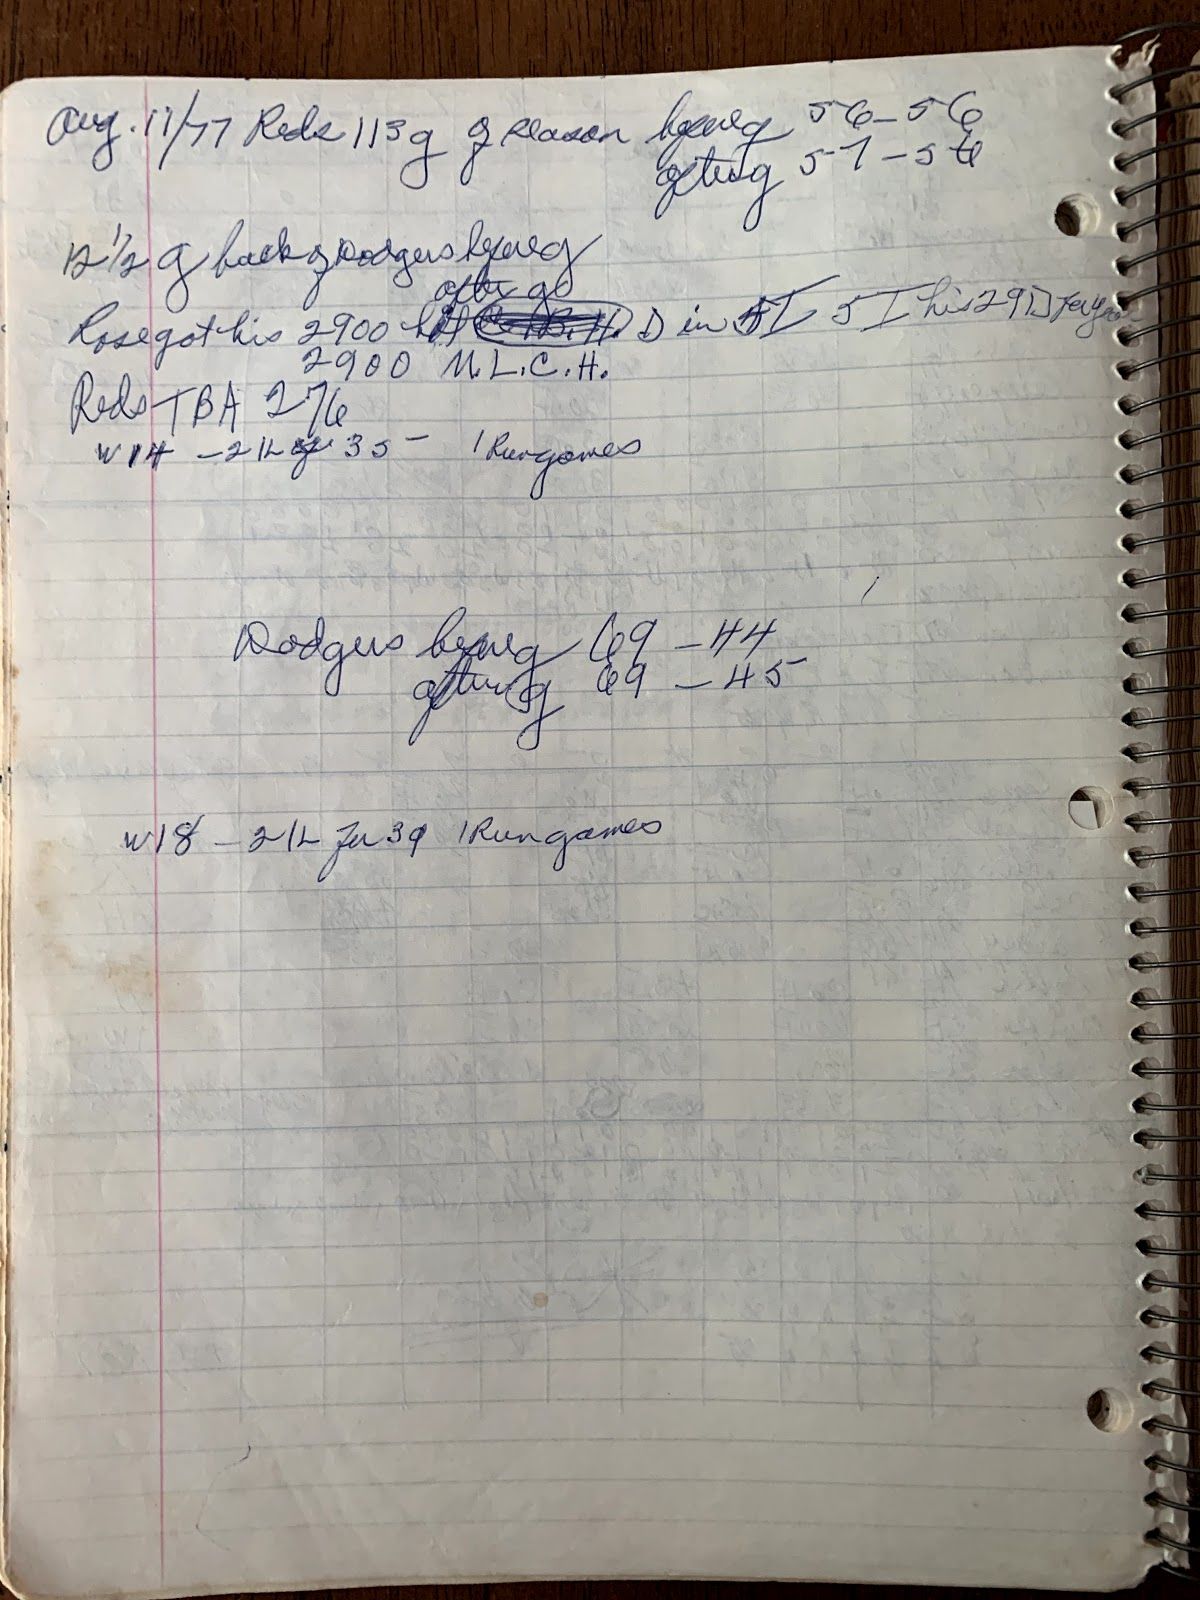 Aug. 11/77 Reds 113 g of season before g 56-56
after g 57-56
12 1/2 g back of Dodgers before g
after g
Rose got his 2900 hit D in 5 I his 29 D for year
2900 M.L.C.H.
Reds TBA 276
W14 - 21L 35 1 Run games
Dodgers before g 69 - 44
after g 69 - 45
W18 - 21L for 39 1 Run games